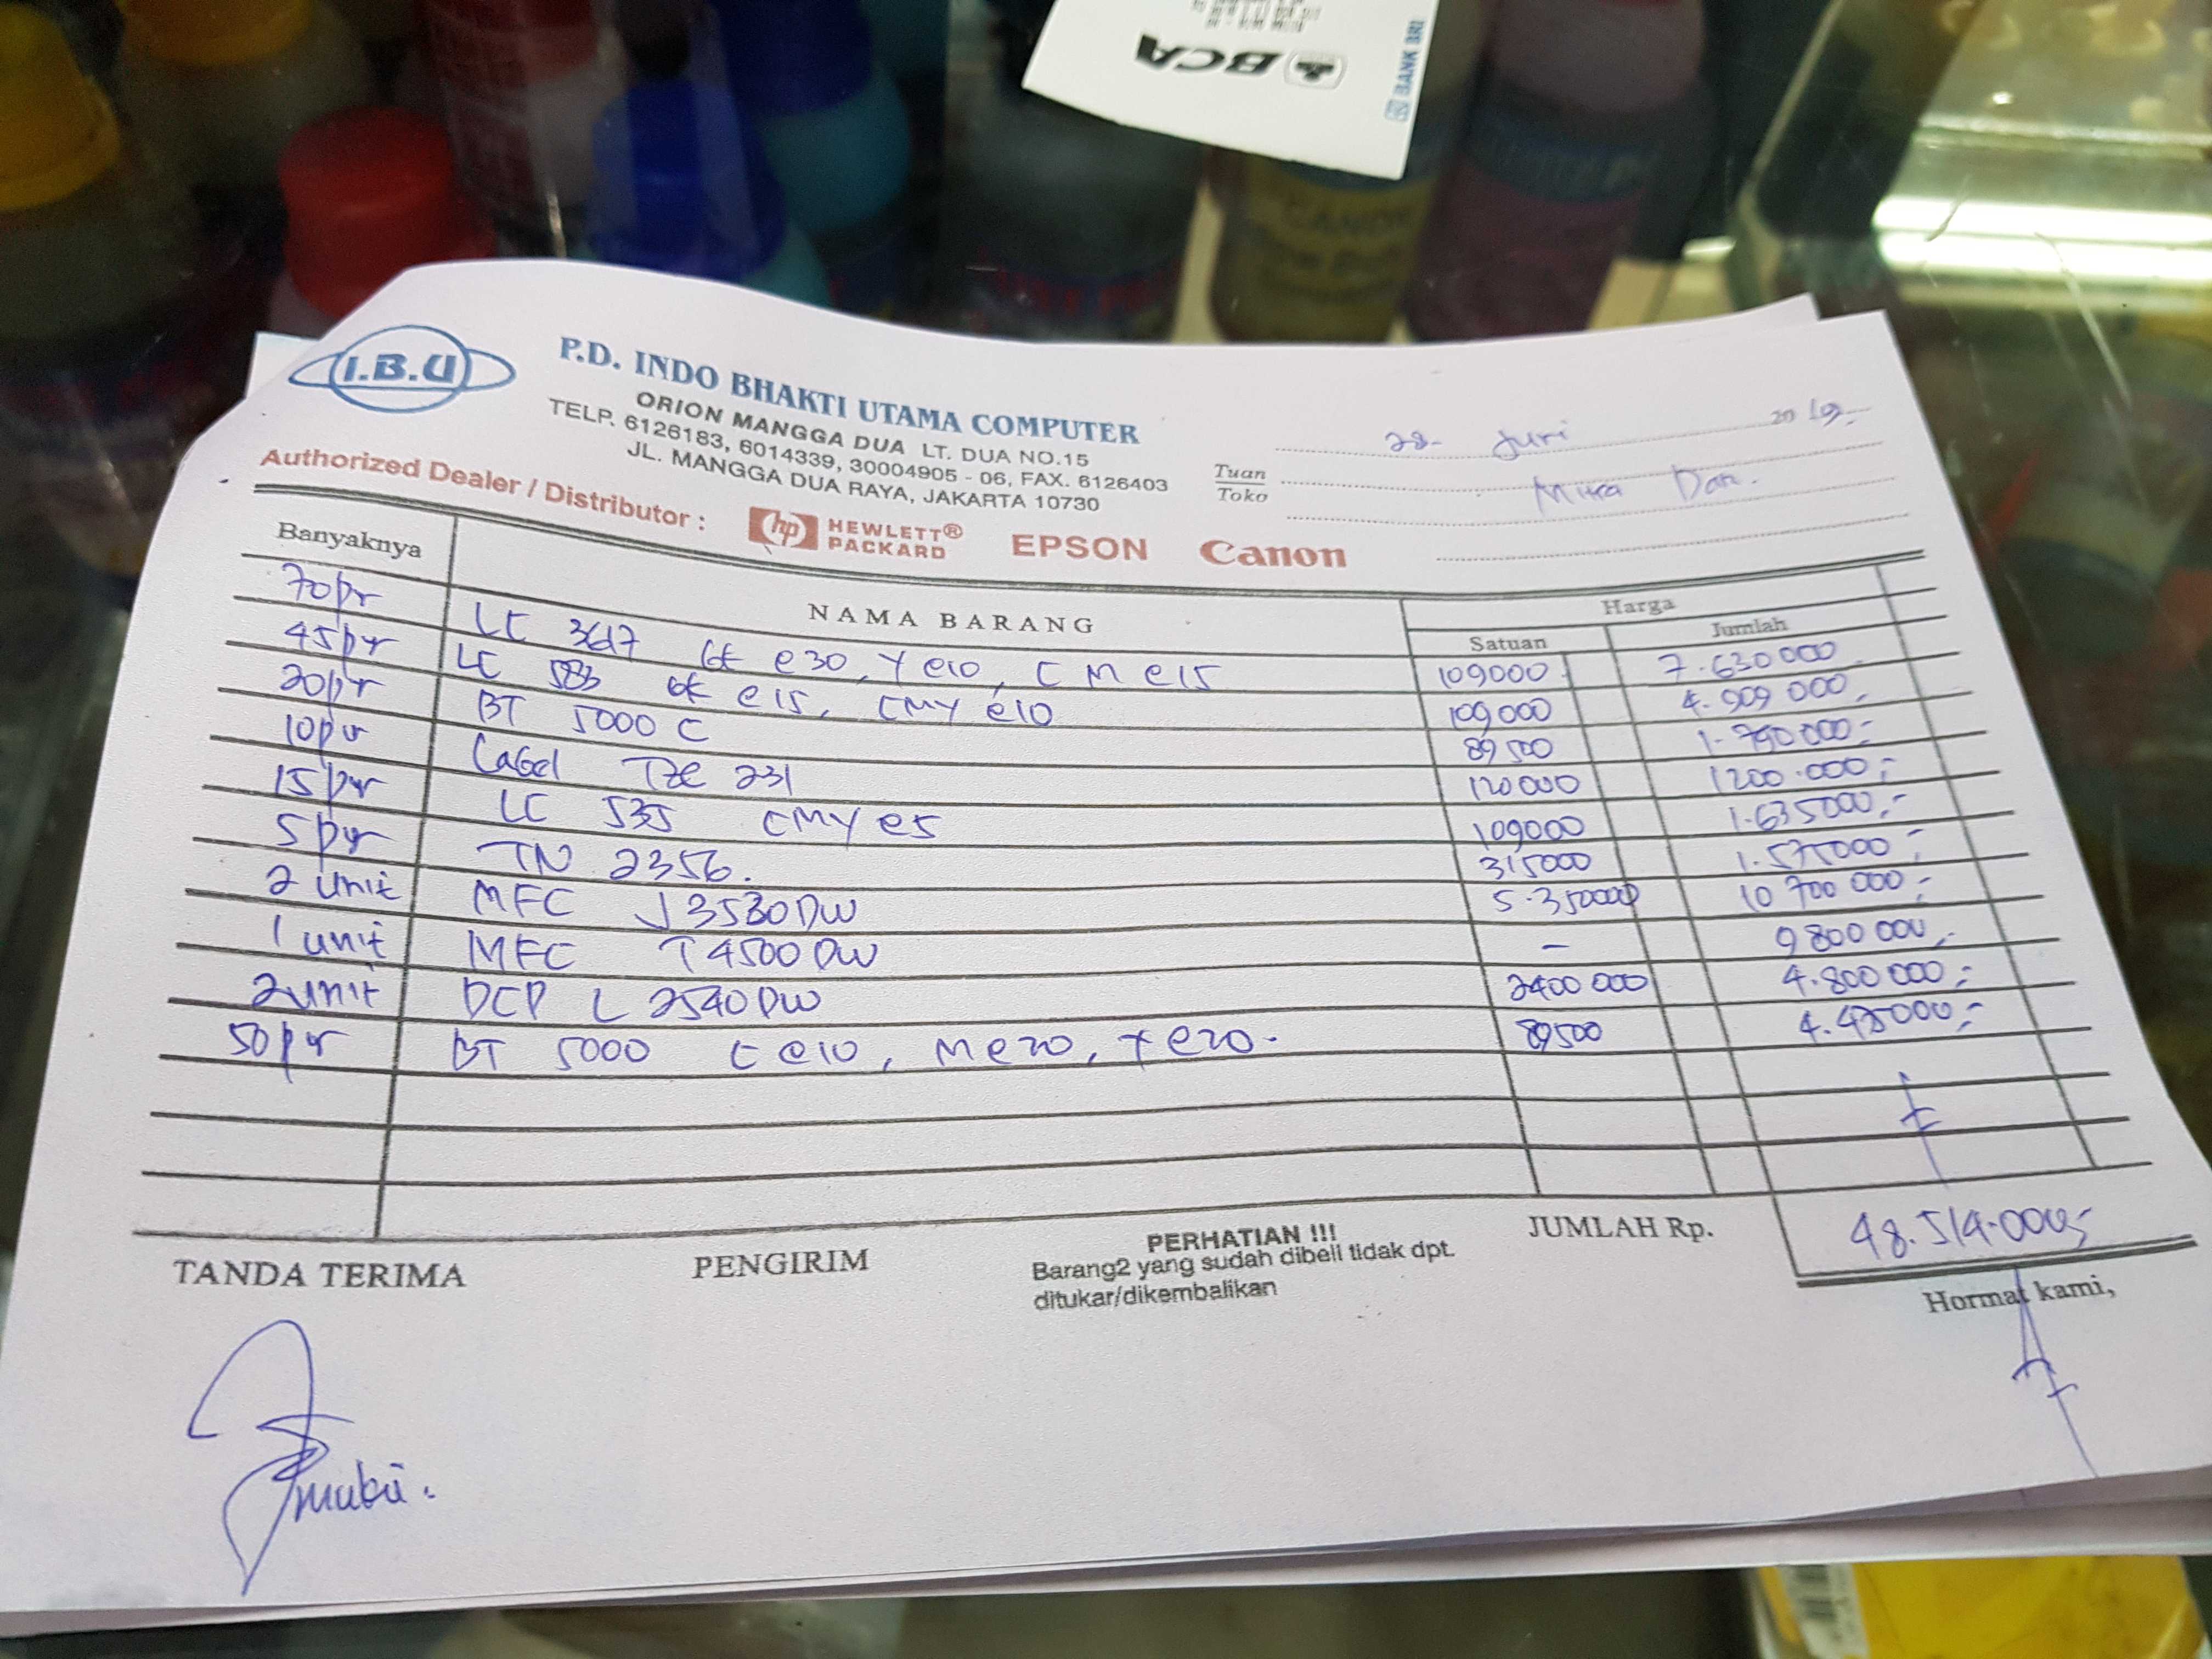 BCA
BANK BRI
CANON
I.B.U
P.D. INDO BHAKTI UTAMA COMPUTER
ORION MANGGA DUA LT. DUA NO.15
TELP. 6126183, 6014339, 30004905 - 06, FAX. 6126403
JL. MANGGA DUA RAYA, JAKARTA 10730
Authorized Dealer / Distributor : hp HEWLETT® PACKARD EPSON Canon
28- Juni 2019.-
Tuan
Toko
Mitra Dan.
Banyaknya NAMA BARANG Harga
Satuan Jumlah
70pr LC 3617 bk @30, Y @10, C M @15 109000 7.630000
45pr LC 583 bk @15, CMY @10 109000 4.909 000,
20pr BT 5000 C 89500 1.790000:-
10pr Label TZE 231 120000 1200.000,-
15pr LC 535 CMY @5 109000 1.635000,-
5pr TN 2356. 315000 1.575000,-
2 unit MFC J3530DW 5.350000 10 700 000,-
1 unit MFC T4500DW - 9800 000,-
2 unit DCP L 2540DW 2400 000 4.800 000,-
50pr BT 5000 C @10, M @20, Y @20. 89500 4.475000,-
JUMLAH Rp. 48.514.000,-
TANDA TERIMA PENGIRIM
PERHATIAN !!!
Barang2 yang sudah dibeli tidak dpt.
ditukar/dikembalikan
Hormat kami,